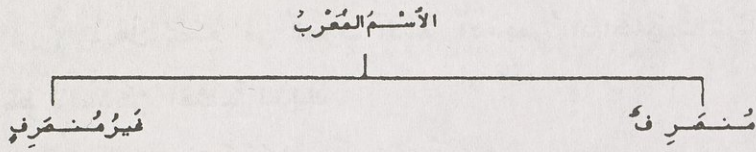 الأسْمُ المُعَرْبُ
مُنصَرِفٌ
غَيرُ مُنصَرِفٍ